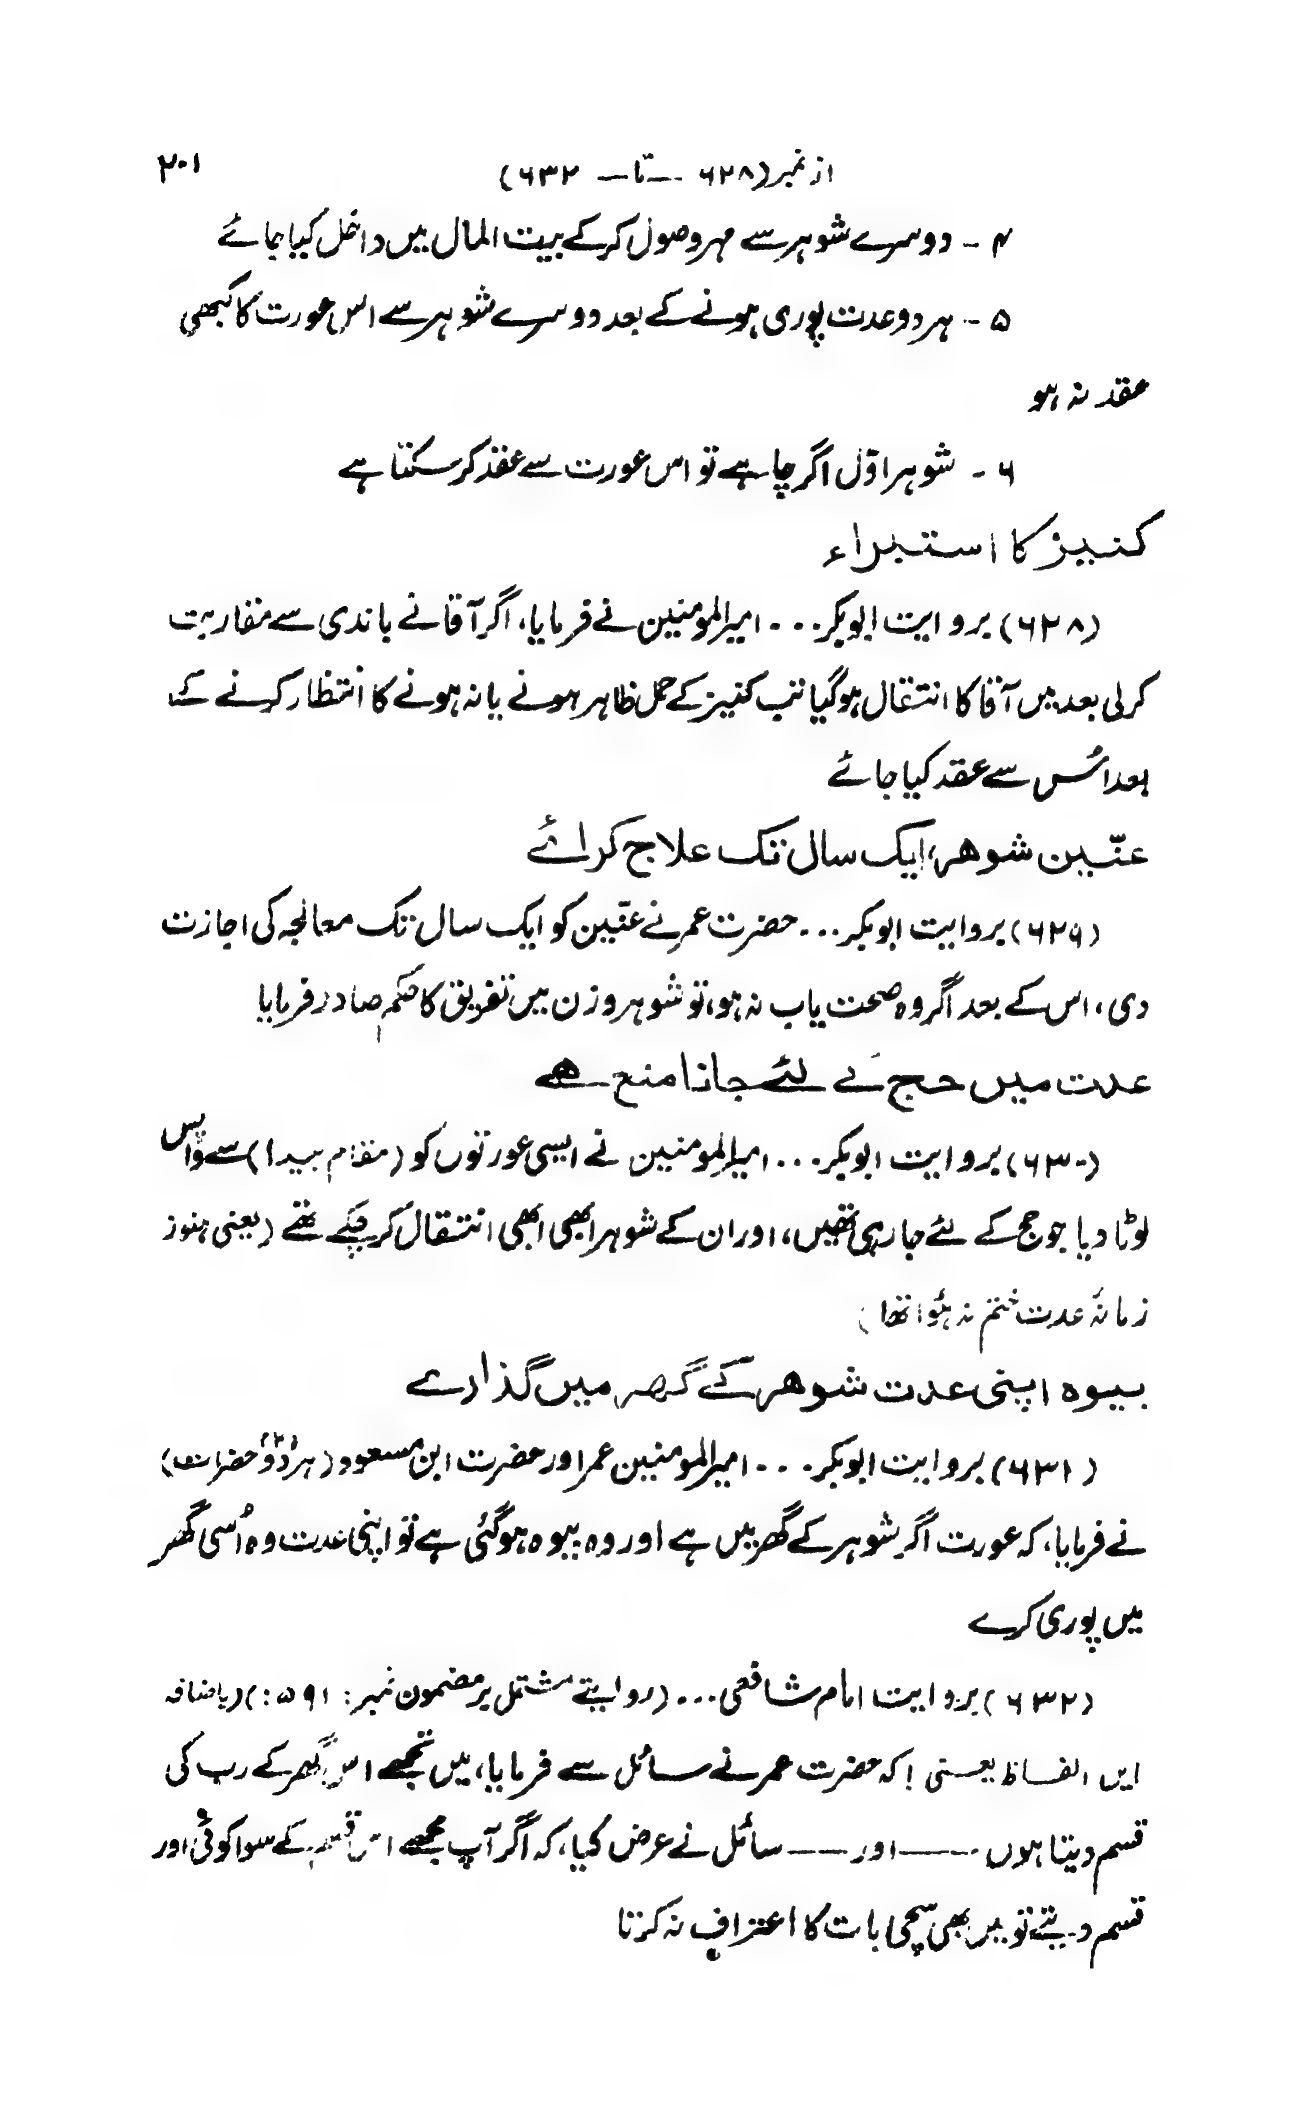 از نمبر (۶۲۸ — تا — ۶۳۲) ۲۰۱
۴ - دوسرے شوہر سے مہر وصول کر کے بیت المال میں داخل کیا جائے
۵ - ہر دو عدت پوری ہونے کے بعد دوسرے شوہر سے اس عورت کا کبھی
عقد نہ ہو
۶ - شوہر اوّل اگر چاہے تو اس عورت سے عقد کر سکتا ہے
کنیز کا استبراء
(۶۲۸) بروایت ابوبکر... امیرالمومنین نے فرمایا، اگر آقا نے باندی سے مقاربت
کر لی بعد میں آقا کا انتقال ہو گیا تب کنیز کے حمل ظاہر ہونے یا نہ ہونے کا انتظار کرنے کے
بعد اُس سے عقد کیا جائے
عنّین شوہر، ایک سال تک علاج کرائے
(۶۲۹) بروایت ابوبکر... حضرت عمر نے عنّین کو ایک سال تک معالجہ کی اجازت
دی، اس کے بعد اگر وہ صحت یاب نہ ہو، تو شوہر و زن میں تفریق کا حکم صادر فرمایا
عدت میں حج کے لئے جانا منع ہے
(۶۳۰) بروایت ابوبکر... امیرالمومنین نے ایسی عورتوں کو (مقام بیدا) سے واپس
لوٹا دیا جو حج کے لئے جا رہی تھیں، اور ان کے شوہر ابھی ابھی انتقال کر چکے تھے (یعنی ہنوز
زمانہٗ عدت ختم نہ ہوا تھا)
بیوہ اپنی عدت شوہر کے گھر میں گذارے
(۶۳۱) بروایت ابوبکر... امیرالمومنین عمر اور حضرت ابن مسعود (ہر دو حضرات)
نے فرمایا، کہ عورت اگر شوہر کے گھر میں ہے اور وہ بیوہ ہو گئی ہے تو اپنی عدت وہ اُسی گھر
میں پوری کرے
(۶۳۲) بروایت امام شافعی... (روایتے مشتمل بر مضمون نمبر: ۵۹۱:) (باضافہ
ایں الفاظ یعنی! کہ حضرت عمر نے سائل سے فرمایا، میں تجھے اس گھر کے رب کی
قسم دیتا ہوں —— اور —— سائل نے عرض کیا، کہ اگر آپ مجھے اس قسم کے سوا کوئی اور
قسم دیتے تو میں بھی سچی بات کا اعتراف نہ کرتا